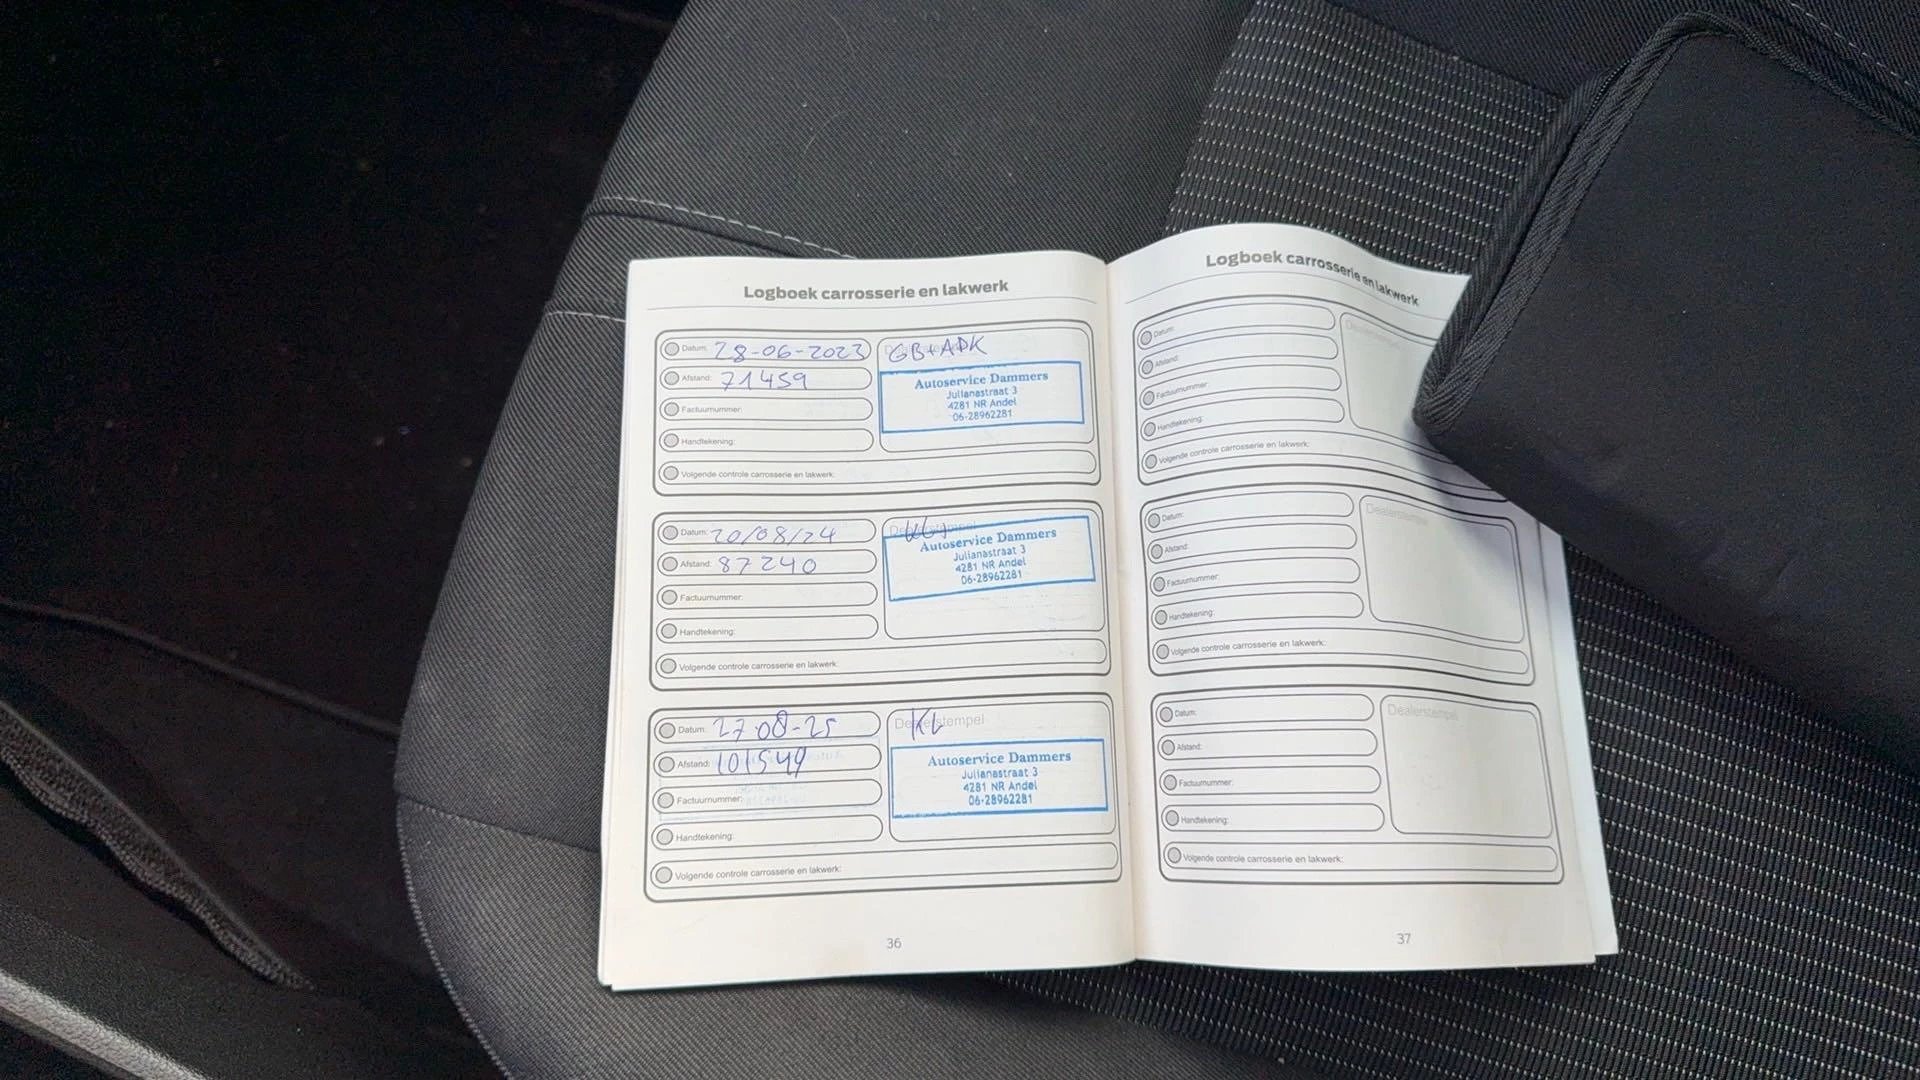 Logboek carrosserie en lakwerk
Datum: 28-06-2023
GB+APK
Afstand: 71459
Autoservice Dammers
Julianastraat 3
4281 NR Andel
06-28962281
Factuurnummer:
Handtekening:
Volgende controle carrosserie en lakwerk:
Datum: 20/08/24
Dealerstempel
Afstand: 87240
Autoservice Dammers
Julianastraat 3
4281 NR Andel
06-28962281
Factuurnummer:
Handtekening:
Volgende controle carrosserie en lakwerk:
Datum: 27-08-25
Dealerstempel
KL
Afstand: 101549
Autoservice Dammers
Julianastraat 3
4281 NR Andel
06-28962281
Factuurnummer:
Handtekening:
Volgende controle carrosserie en lakwerk:
36
Logboek carrosserie en lakwerk
Datum:
Dealerstempel
Afstand:
Factuurnummer:
Handtekening:
Volgende controle carrosserie en lakwerk:
Datum:
Dealerstempel
Afstand:
Factuurnummer:
Handtekening:
Volgende controle carrosserie en lakwerk:
Datum:
Dealerstempel
Afstand:
Factuurnummer:
Handtekening:
Volgende controle carrosserie en lakwerk:
37